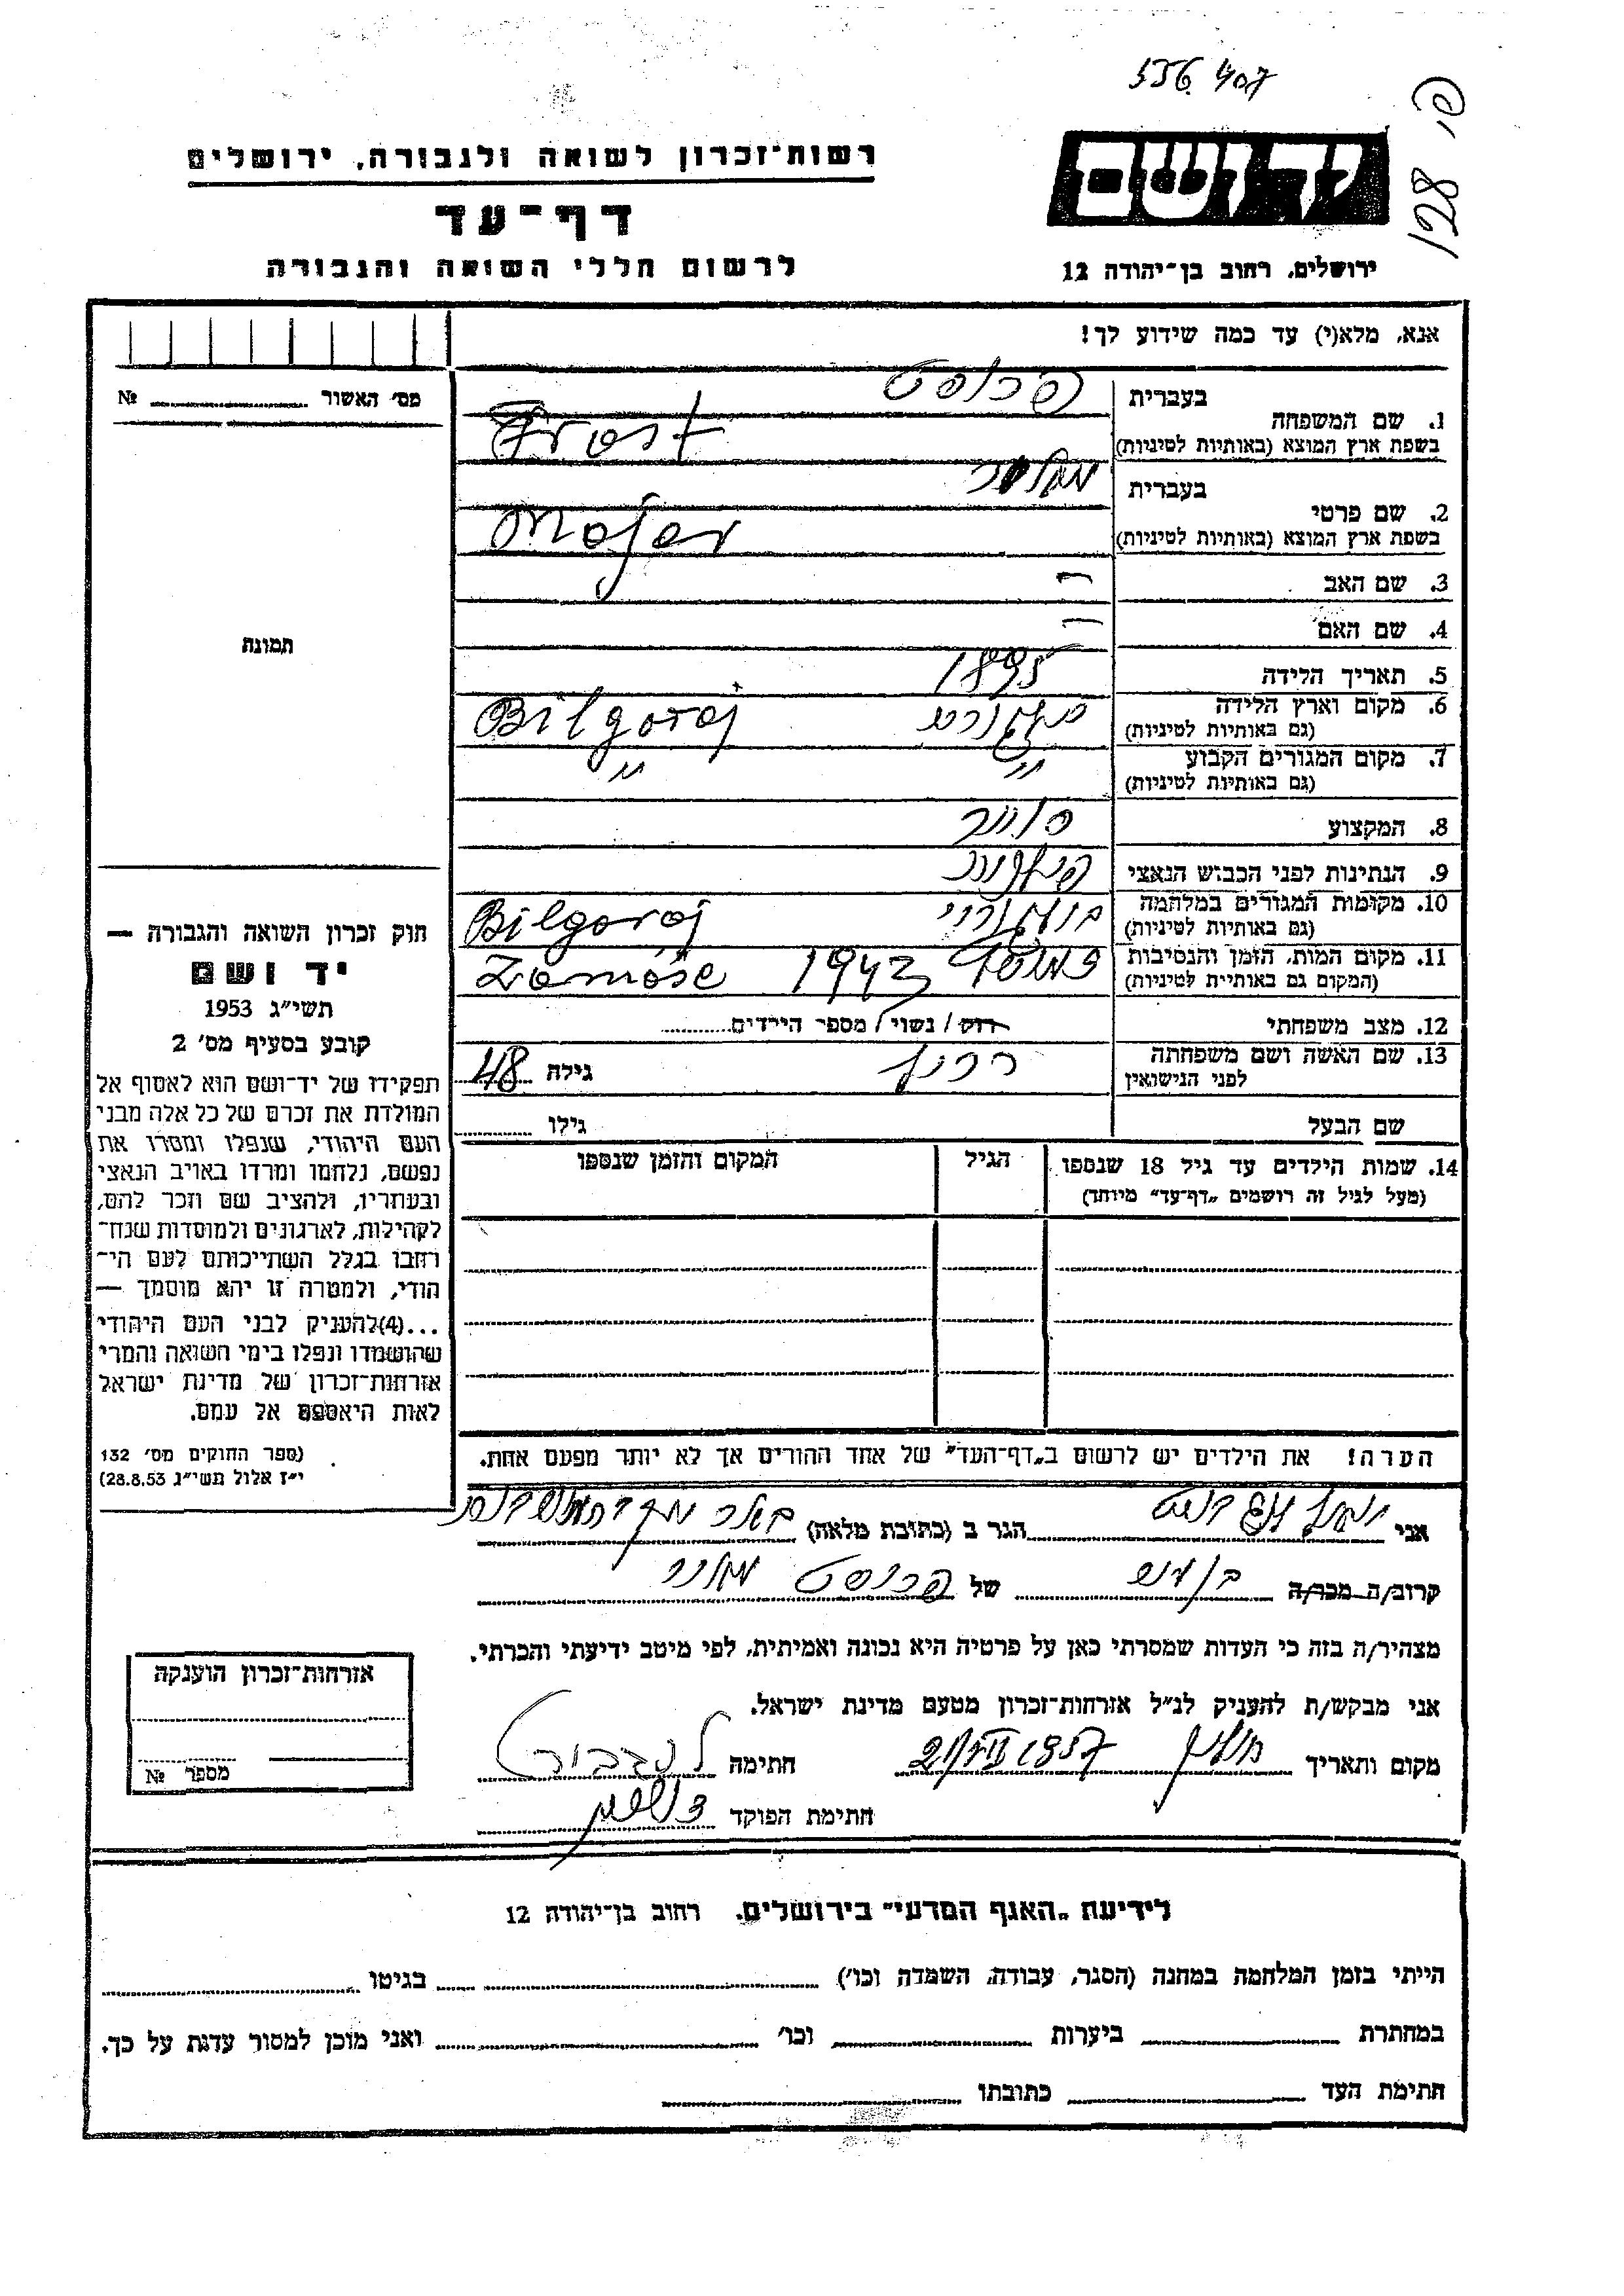 556 407
פו 128
יד ושם
רשות־זכרון לשואה ולגבורה, ירושלים
דף־עד
ירושלים, רחוב בן־יהודה 12
לרשום חללי השואה והגבורה
אנא, מלא(י) עד כמה שידוע לך!
מס׳ האשור № 
1. שם המשפחה
בעברית פרוסט
בשפת ארץ המוצא (באותיות לטיניות) Frost
2. שם פרטי
בעברית
בשפת ארץ המוצא (באותיות לטיניות) Majer
3. שם האב —
4. שם האם —
תמונה
5. תאריך הלידה 1895
6. מקום וארץ הלידה
(גם באותיות לטיניות) Bilgoraj
7. מקום המגורים הקבוע
(גם באותיות לטיניות) " "
8. המקצוע סוחר
9. הנתינות לפני הכבוש הנאצי
10. מקומות המגורים במלחמה
(גם באותיות לטיניות) Bilgoraj
11. מקום המות, הזמן והנסיבות
(המקום גם באותיות לטיניות) 1942 Zamość
12. מצב משפחתי רוק / נשוי / מספר הילדים
13. שם האשה ושם משפחתה
לפני הנישואין גילה 48
שם הבעל גילו
14. שמות הילדים עד גיל 18 שנספו הגיל המקום והזמן שנספו
(מעל לגיל זה רושמים „דף־עד" מיוחד)
חוק זכרון השואה והגבורה —
יד ושם
תשי״ג 1953
קובע בסעיף מס׳ 2
תפקידו של יד־ושם הוא לאסוף אל
המולדת את זכרם של כל אלה מבני
העם היהודי, שנפלו ומסרו את
נפשם, נלחמו ומרדו באויב הנאצי
ובעוזריו, ולהציב שם וזכר להם,
לקהילות, לארגונים ולמוסדות שנח־
רבו בגלל השתייכותם לעם הי־
הודי, ולמטרה זו יהא מוסמך —
...(4) להעניק לבני העם היהודי
שהושמדו ונפלו בימי השואה והמרי
אזרחות־זכרון של מדינת ישראל
לאות היאספם אל עמם.
(ספר החוקים מס׳ 132
י״ז אלול תשי״ג 28.8.53)
הערה! את הילדים יש לרשום ב„דף־העד" של אחד ההורים אך לא יותר מפעם אחת.
אני הגר ב (כתובת מלאה)
קרוב/ה מכר/ה של פרוסט
מצהיר/ה בזה כי העדות שמסרתי כאן על פרטיה היא נכונה ואמיתית, לפי מיטב ידיעתי והכרתי.
אני מבקש/ת להעניק לנ״ל אזרחות־זכרון מטעם מדינת ישראל.
מקום ותאריך 21/VII 1957 חתימה
חתימת הפוקד
אזרחות־זכרון הוענקה
מספר №
לידיעת „האגף המדעי" בירושלים, רחוב בן־יהודה 12
הייתי בזמן המלחמה במחנה (הסגר, עבודה, השמדה וכו׳) בגיטו
במחתרת ביערות וכו׳ ואני מוכן למסור עדות על כך.
חתימת העד כתובתו